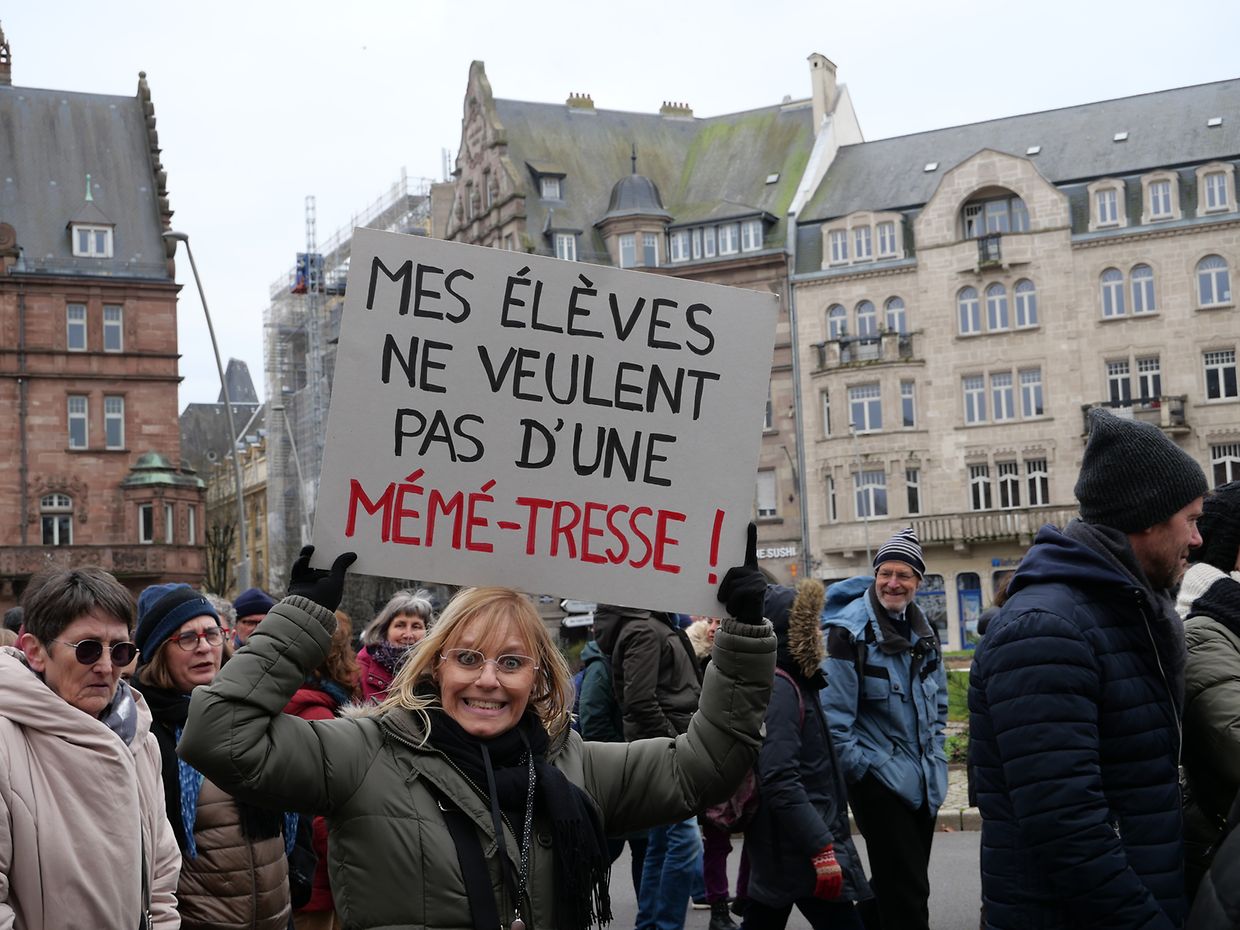 MES ÉLÈVES
NE VEULENT
PAS D'UNE
MÉMÉ-TRESSE !
SUSHI